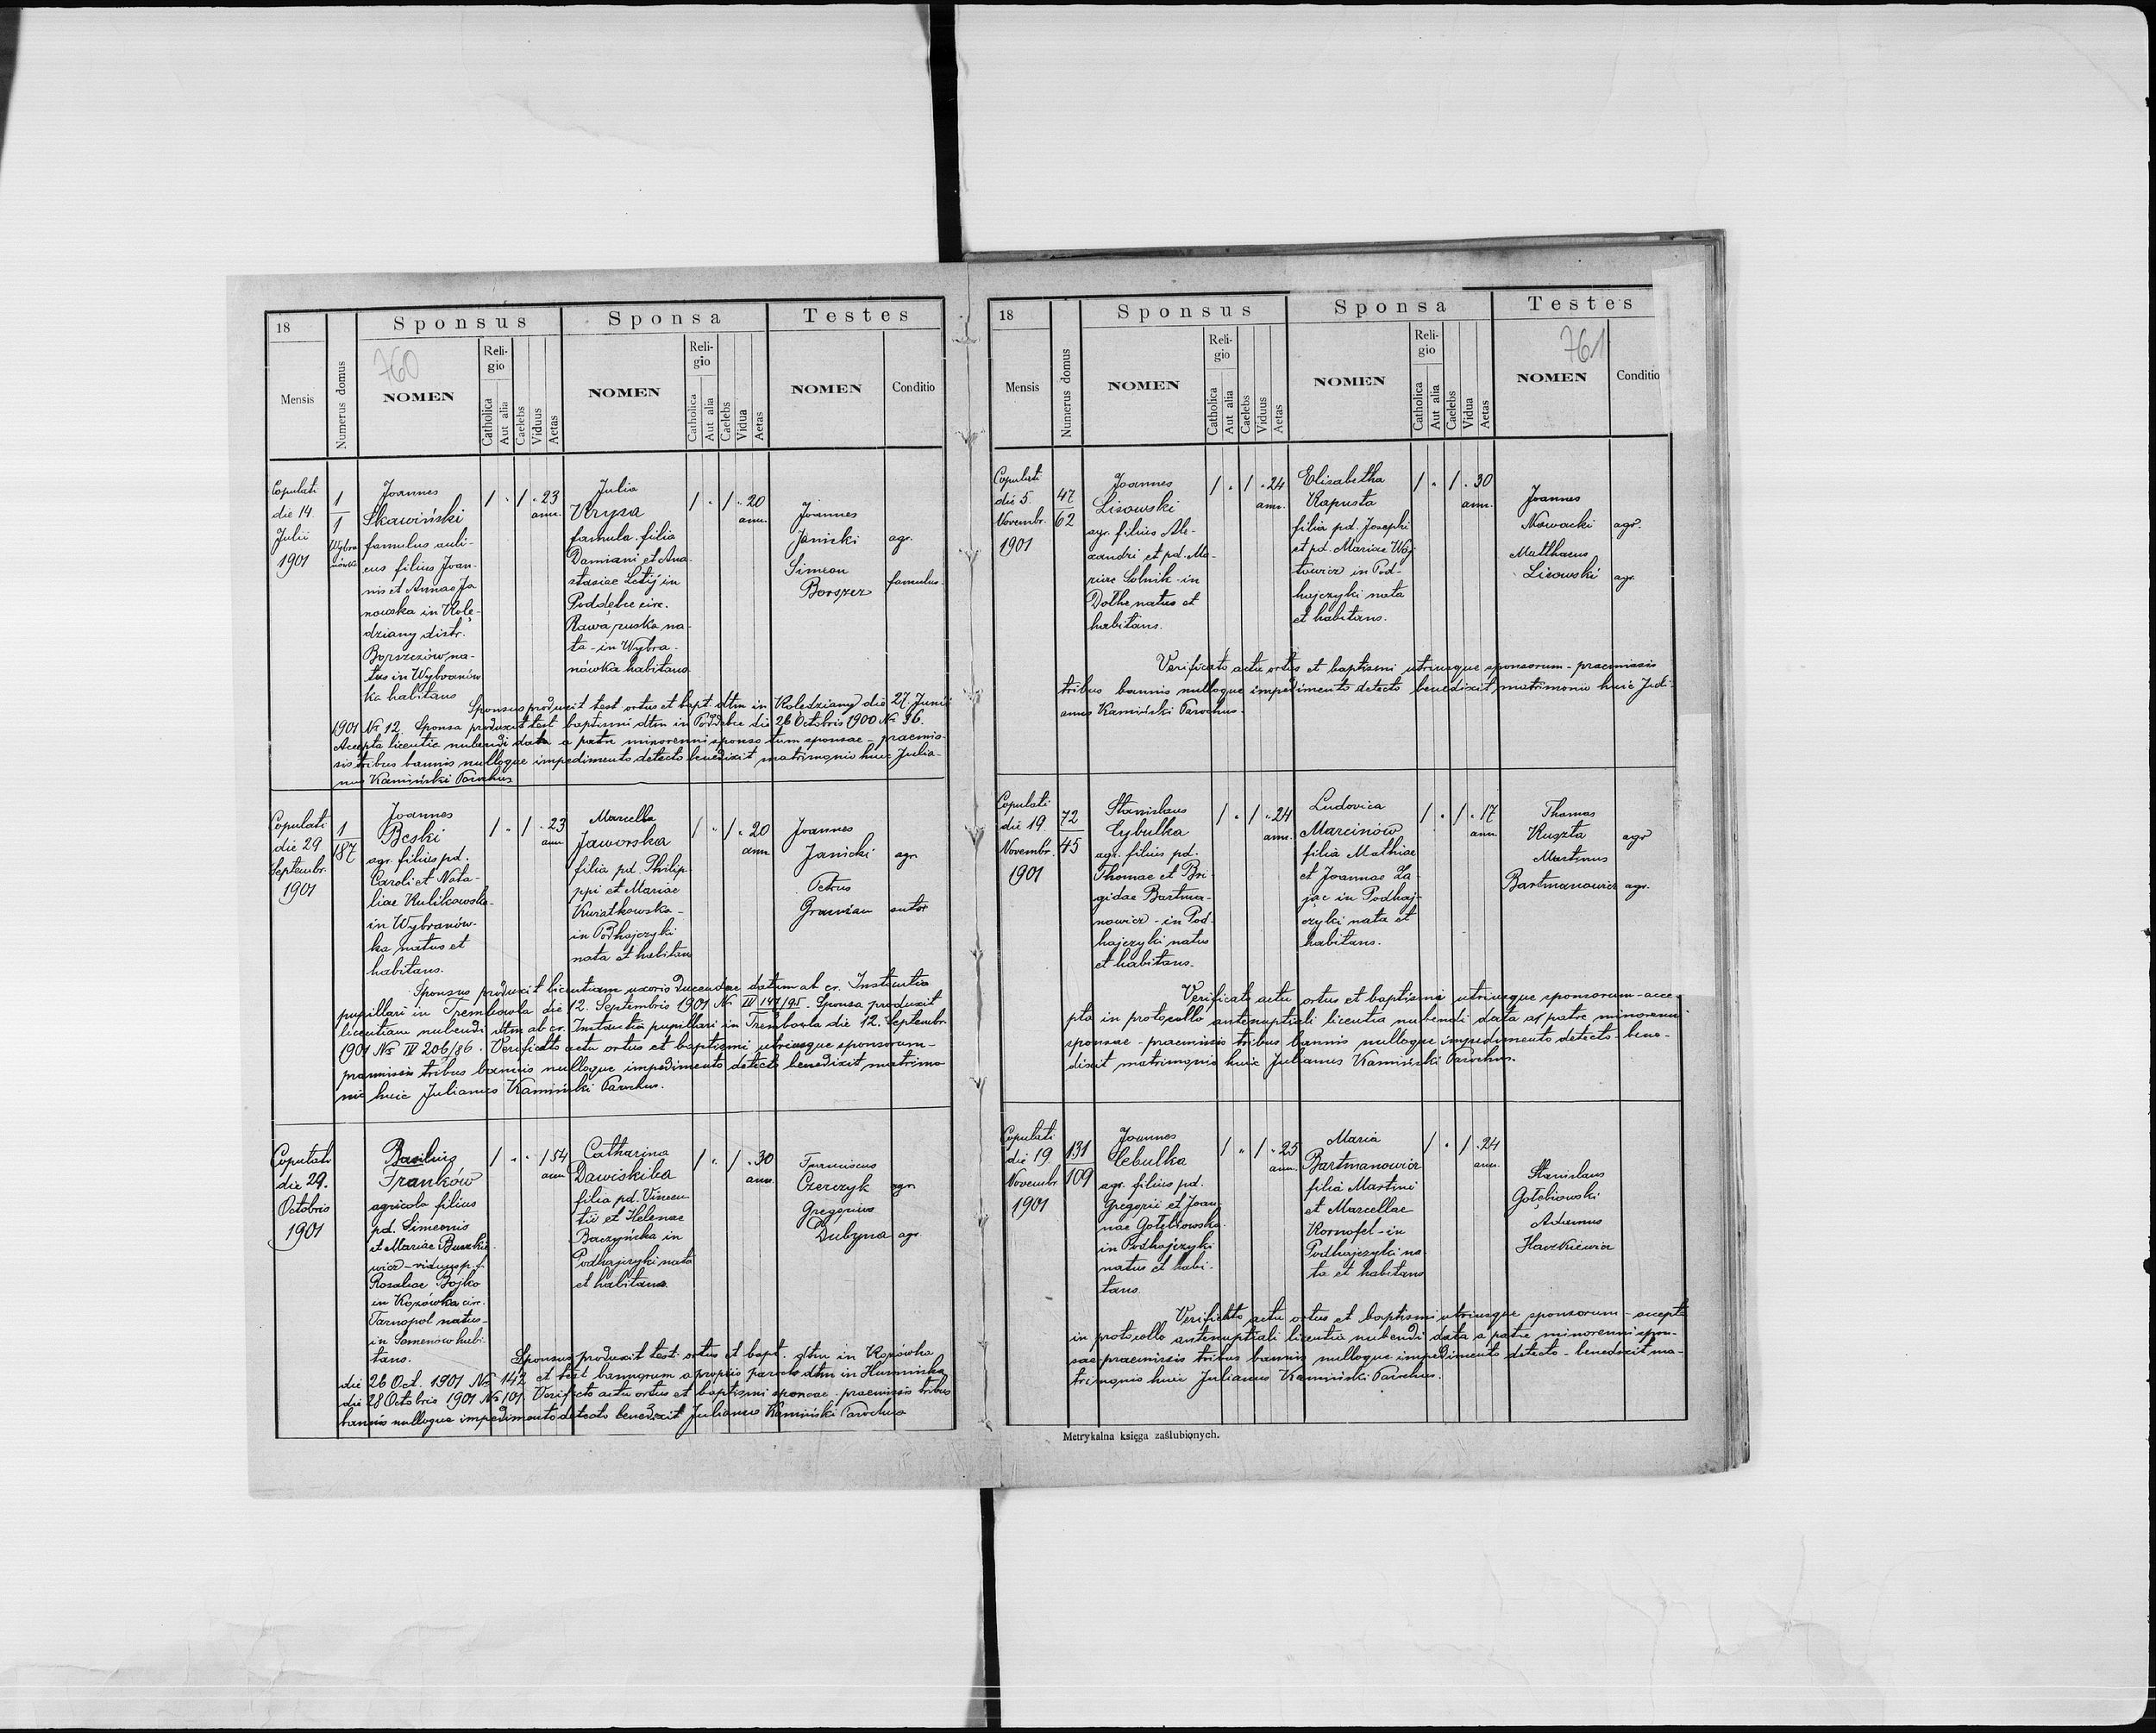 18
Sponsus
Sponsa
Testes
Mensis
Numerus domus
760
NOMEN
Religio
Catholica
Aut alia
Caelebs
Viduus
Aetas
NOMEN
Religio
Catholica
Aut alia
Caelebs
Vidua
Aetas
NOMEN
Conditio
Copulati
die 14
Julii
1901
1
1
Wybra
nówka
Joannes
Skawiński
famulus auli-
cus filius Joan-
nis et Annae Ja
nowska in Kolę-
dziany distr.
Borszczów na-
tus in Wybranów
ka habitans
/ " / " 23
ann.
Julia
Krysa
famula filia
Damiani et Ana
stasiae Letij in
Poddębce circ.
Rawa ruska na-
ta - in Wybra-
nówka habitans
/ " / " 20
ann.
Joannes
Janicki agr.
Simeon
Borszcz famulus
Sponsus produxit test ortus et bapt. dtm in Kolędziany die 27. Junii
1901 Nr 12. Sponsa produxit test baptismi dtm in Poddebce die 26 Octobris 1900 Nr 96.
Accepta licentia nubendi data a patre minorenni sponso tum sponsae - praemis-
sis tribus bannis nulloque impedimento detecto benedixit matrimonio huic Julia-
nus Kamiński Parochus
Copulati
die 29
Septembr.
1901
1
187
Joannes
Beski
agr. filius pd.
Caroli et Nata-
liae Kulikowska
in Wybranów-
ka natus et
habitans.
/ " / " 23
ann
Marcella
Jaworska
filia pd. Philip
ppi et Mariae
Kwiatkowska -
in Podhajczyki
nata et habitans
/ " / " 20
ann
Joannes
Janicki agr.
Petrus
Gramiau sutor
Sponsus produxit licentiam uxoris ducendae datam ab cr. Instantia
pupillari in Trembowla die 12. Septembris 1901 Nr IV 147/95. Sponsa produxit
licentiam nubendi dtm ab cr. Instantia pupillari in Trembowla die 12. Septembr
1901 Nr IV 206/86. Verificato actu ortus et baptismi utriusque sponsorum -
praemissis tribus bannis nulloque impedimento detecto benedixit matrimo
nio huic Julianus Kamiński Parochus.
Copulati
die 29.
Octobris
1901
Basilius
Franków
agricola filius
pd. Simeonis
et Mariae Buszkie
wicz - viduus p.f.
Rosaliae Bojko
in Kozówka circ.
Tarnopol natus -
in Semenów habi-
tans.
/ " " / 54
ann
Catharina
Dawiskiba
filia pd. Vincen
tii et Helenae
Baczyńska in
Podhajczyki nata
et habitans.
/ " / " 30
ann.
Franciscus
Czerczyk agr
Gregorius
Dubyna agr.
Sponsus produxit test. ortus et bapt. dtm in Kozówka
die 26 Oct. 1901 Nr 142 et test bannorum a propio parocho dtm in Humniska
die 28 Octobris 1901 Nr 101. Verificto actu ortus et baptismi sponsae - praemissis tribus
bannis nulloque impedimento detecto benedixit Julianus Kamiński Parochus
18
Sponsus
Sponsa
Testes
Mensis
Numerus domus
NOMEN
Religio
Catholica
Aut alia
Caelebs
Viduus
Aetas
NOMEN
Religio
Catholica
Aut alia
Caelebs
Vidua
Aetas
761
NOMEN
Conditio
Copulati
die 5.
Novembr.
1901
47
62
Joannes
Lisowski
agr. filius Ale-
xandri et pd. Ma-
riae Solnik - in
Dolhe natus et
habitans.
/ " / " 24
ann.
Elisabetha
Kapusta
filia pd. Josephi
et pd. Mariae Woj
towicz in Pod-
hajczyki nata
et habitans.
/ " / " 30
ann.
Joannes
Nowacki agr.
Matthaeus
Lisowski agr.
Verificato actu ortus et baptismi utriusque sponsorum - praemissis
tribus bannis nulloque impedimento detecto benedixit matrimonio huic Juli-
anus Kamiński Parochus.
Copulati
die 19
Novembr.
1901
72
45
Stanislaus
Cybulka
agr. filius pd.
Thomae et Bri-
gidae Bartma-
nowicz - in Pod-
hajczyki natus
et habitans.
/ " / " 24
ann.
Ludovica
Marcinów
filia Mathiae
et Joannae Za
jąc in Podhaj-
czyki nata et
habitans.
/ " / " 17
ann.
Thomas
Kuszta agr
Martinus
Bartmanowicz agr.
Verificato actu ortus et baptismi utriusque sponsorum - acce-
pta in protocollo antenuptiali licentia nubendi data a patre minorenni
sponsae - praemissis tribus bannis nulloque impedimento detecto - bene-
dixit matrimonio huic Julianus Kamiński Parochus.
Copulati
die 19
Novembr
1901
131
109
Joannes
Cebulka
agr. filius pd.
Gregorii et Joan
nae Gołębiowska
in Podhajczyki
natus et habi-
tans.
/ " / " 25
ann.
Maria
Bartmanowicz
filia Martini
et Marcellae
Kornofel - in
Podhajczyki na
ta et habitans
/ " / " 24
ann.
Stanislaus
Gołębiowski
Adamus
Hawkiewicz
Verificato actu ortus et baptismi utriusque sponsorum - accepta
in protocollo antenuptiali licentia nubendi data a patre minorenni spon-
sae praemissis tribus bannis nulloque impedimento detecto - benedixit ma-
trimonio huic Julianus Kamiński Parochus.
Metrykalna księga zaślubionych.